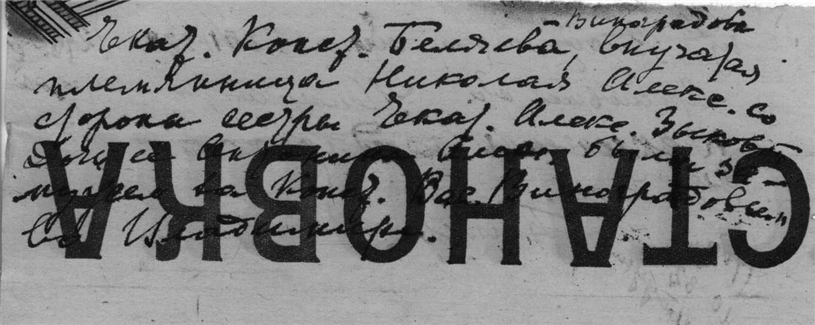 Виноградова
Екат. Конст. Беляева, внучатая
племянница Николая Алекс. со
стороны сестры Екат. Алекс. Зыковой
Дочь ее была за-
мужем за Конст. Вас. Виноградовым
во Владимире.
СТАНОВКА